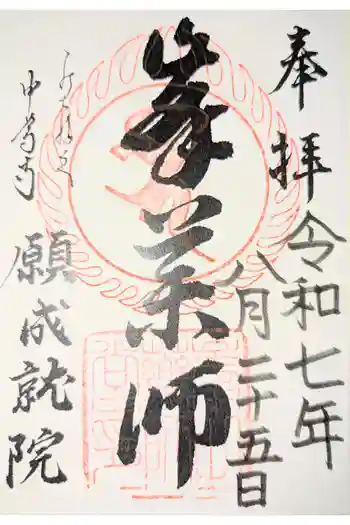 奉拝
令和七年
八月二十五日
峯薬師
中尊寺
願成就院